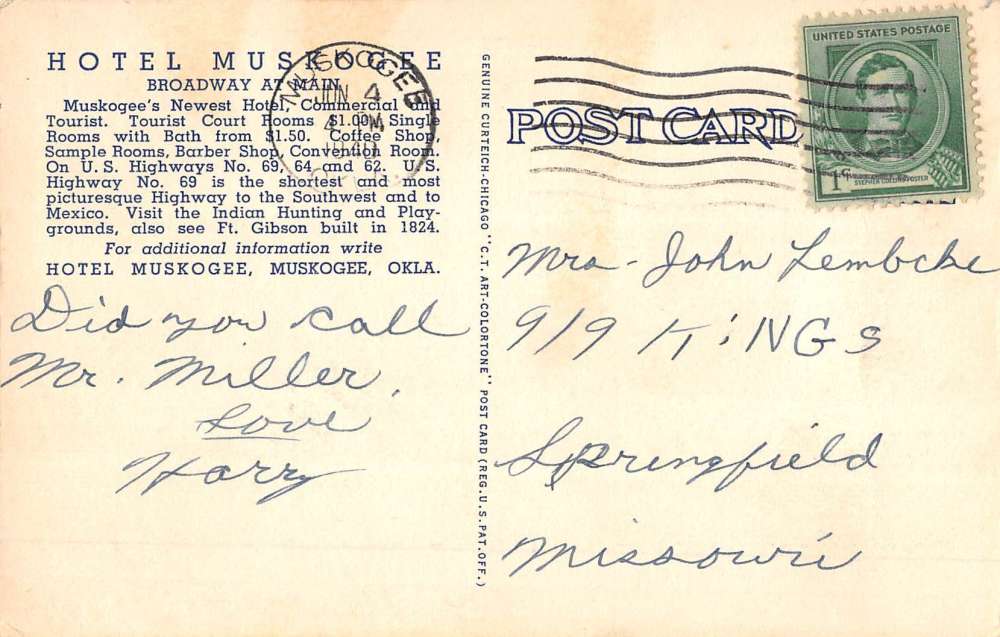 HOTEL MUSKOGEE
BROADWAY AT MAIN
Muskogee's Newest Hotel, Commercial and
Tourist. Tourist Court Rooms $1.00, Single
Rooms with Bath from $1.50. Coffee Shop,
Sample Rooms, Barber Shop, Convention Room.
On U. S. Highways No. 69, 64 and 62. U. S.
Highway No. 69 is the shortest and most
picturesque Highway to the Southwest and to
Mexico. Visit the Indian Hunting and Play-
grounds, also see Ft. Gibson built in 1824.
For additional information write
HOTEL MUSKOGEE, MUSKOGEE, OKLA.
MUSKOGEE
JUN 4
PM
1940
Did you call
Mr. Miller.
Love
Harry
GENUINE CURTEICH-CHICAGO "C.T. ART-COLORTONE" POST CARD (REG. U.S. PAT. OFF.)
POST CARD
UNITED STATES POSTAGE
1¢
STEPHEN COLLINS FOSTER
Mrs - John Lembcke
919 KiNGS
Springfield
Missouri